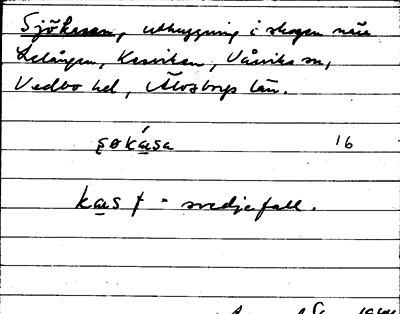 Sjökasen, uthuggning i skogen nära
Lelången, Kasviken, Vårviks sn,
Vedbo hd, Älvsborgs län.
16
kas f = svedjefall.